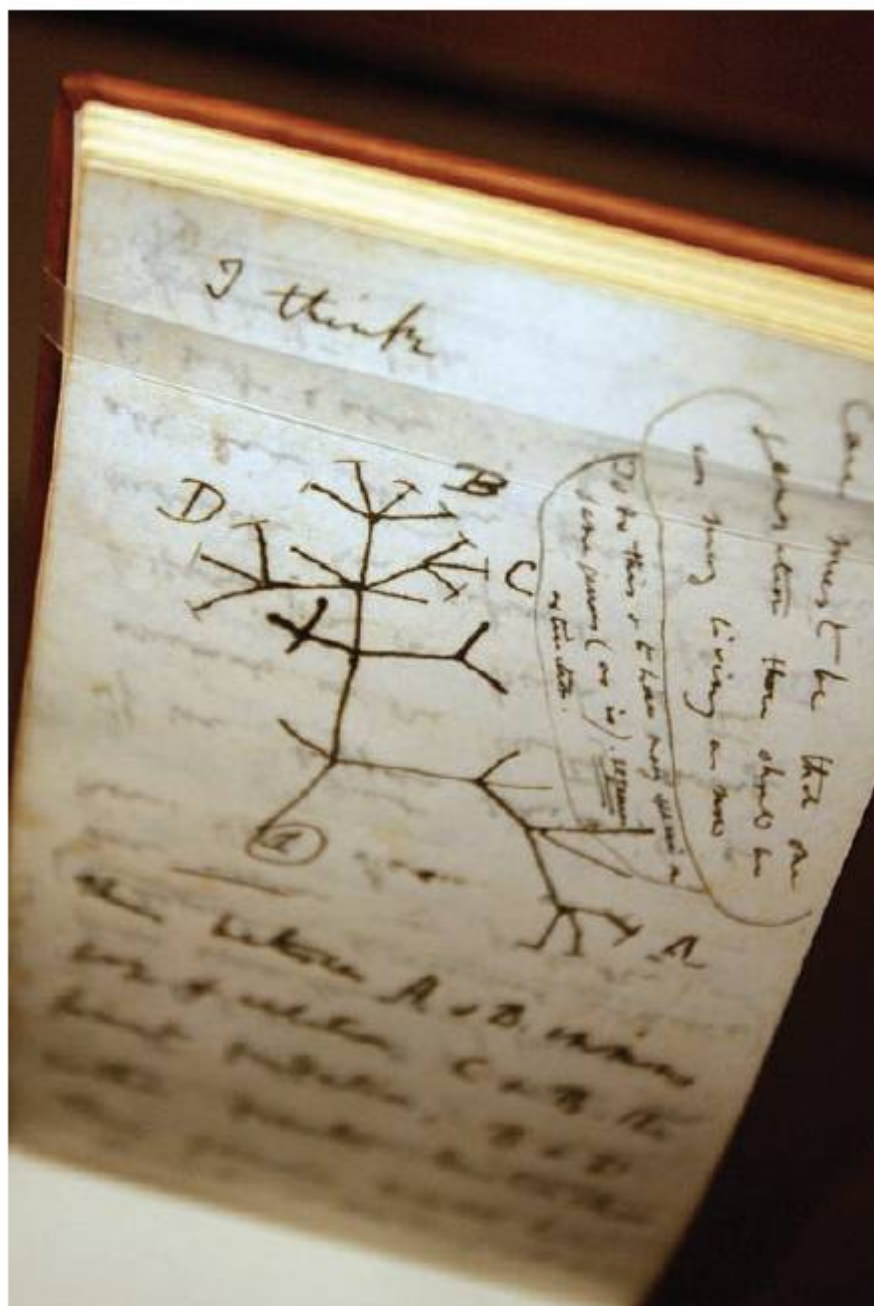 I think
Case must be that one
generation then should be
as many living as now
To do this & to have many species in
same genus (as is). requires
extinction.
D
B
C
A
1
Thus between A & B. immens
gap of relation. C & B. the
finest gradation, B & D
rather greater distinction